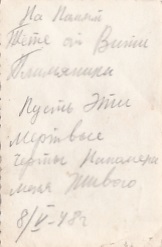 На Память
Тёте от Вити
Племянника
Пусть Эти
Мертвые
черты напомнят
меня Живого
8/V-48г